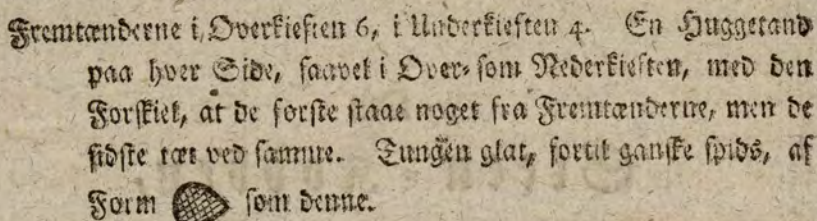 Fremtænderne i Overkieften 6, i Underkieften 4. En Huggetand
paa hver Side, saavel i Over- som Nederkieften, med den
Forskiel, at de første staae noget fra Fremtænderne, men de
sidste tæt ved samme. Tungen glat, fortil ganske spids, af
Form som denne.